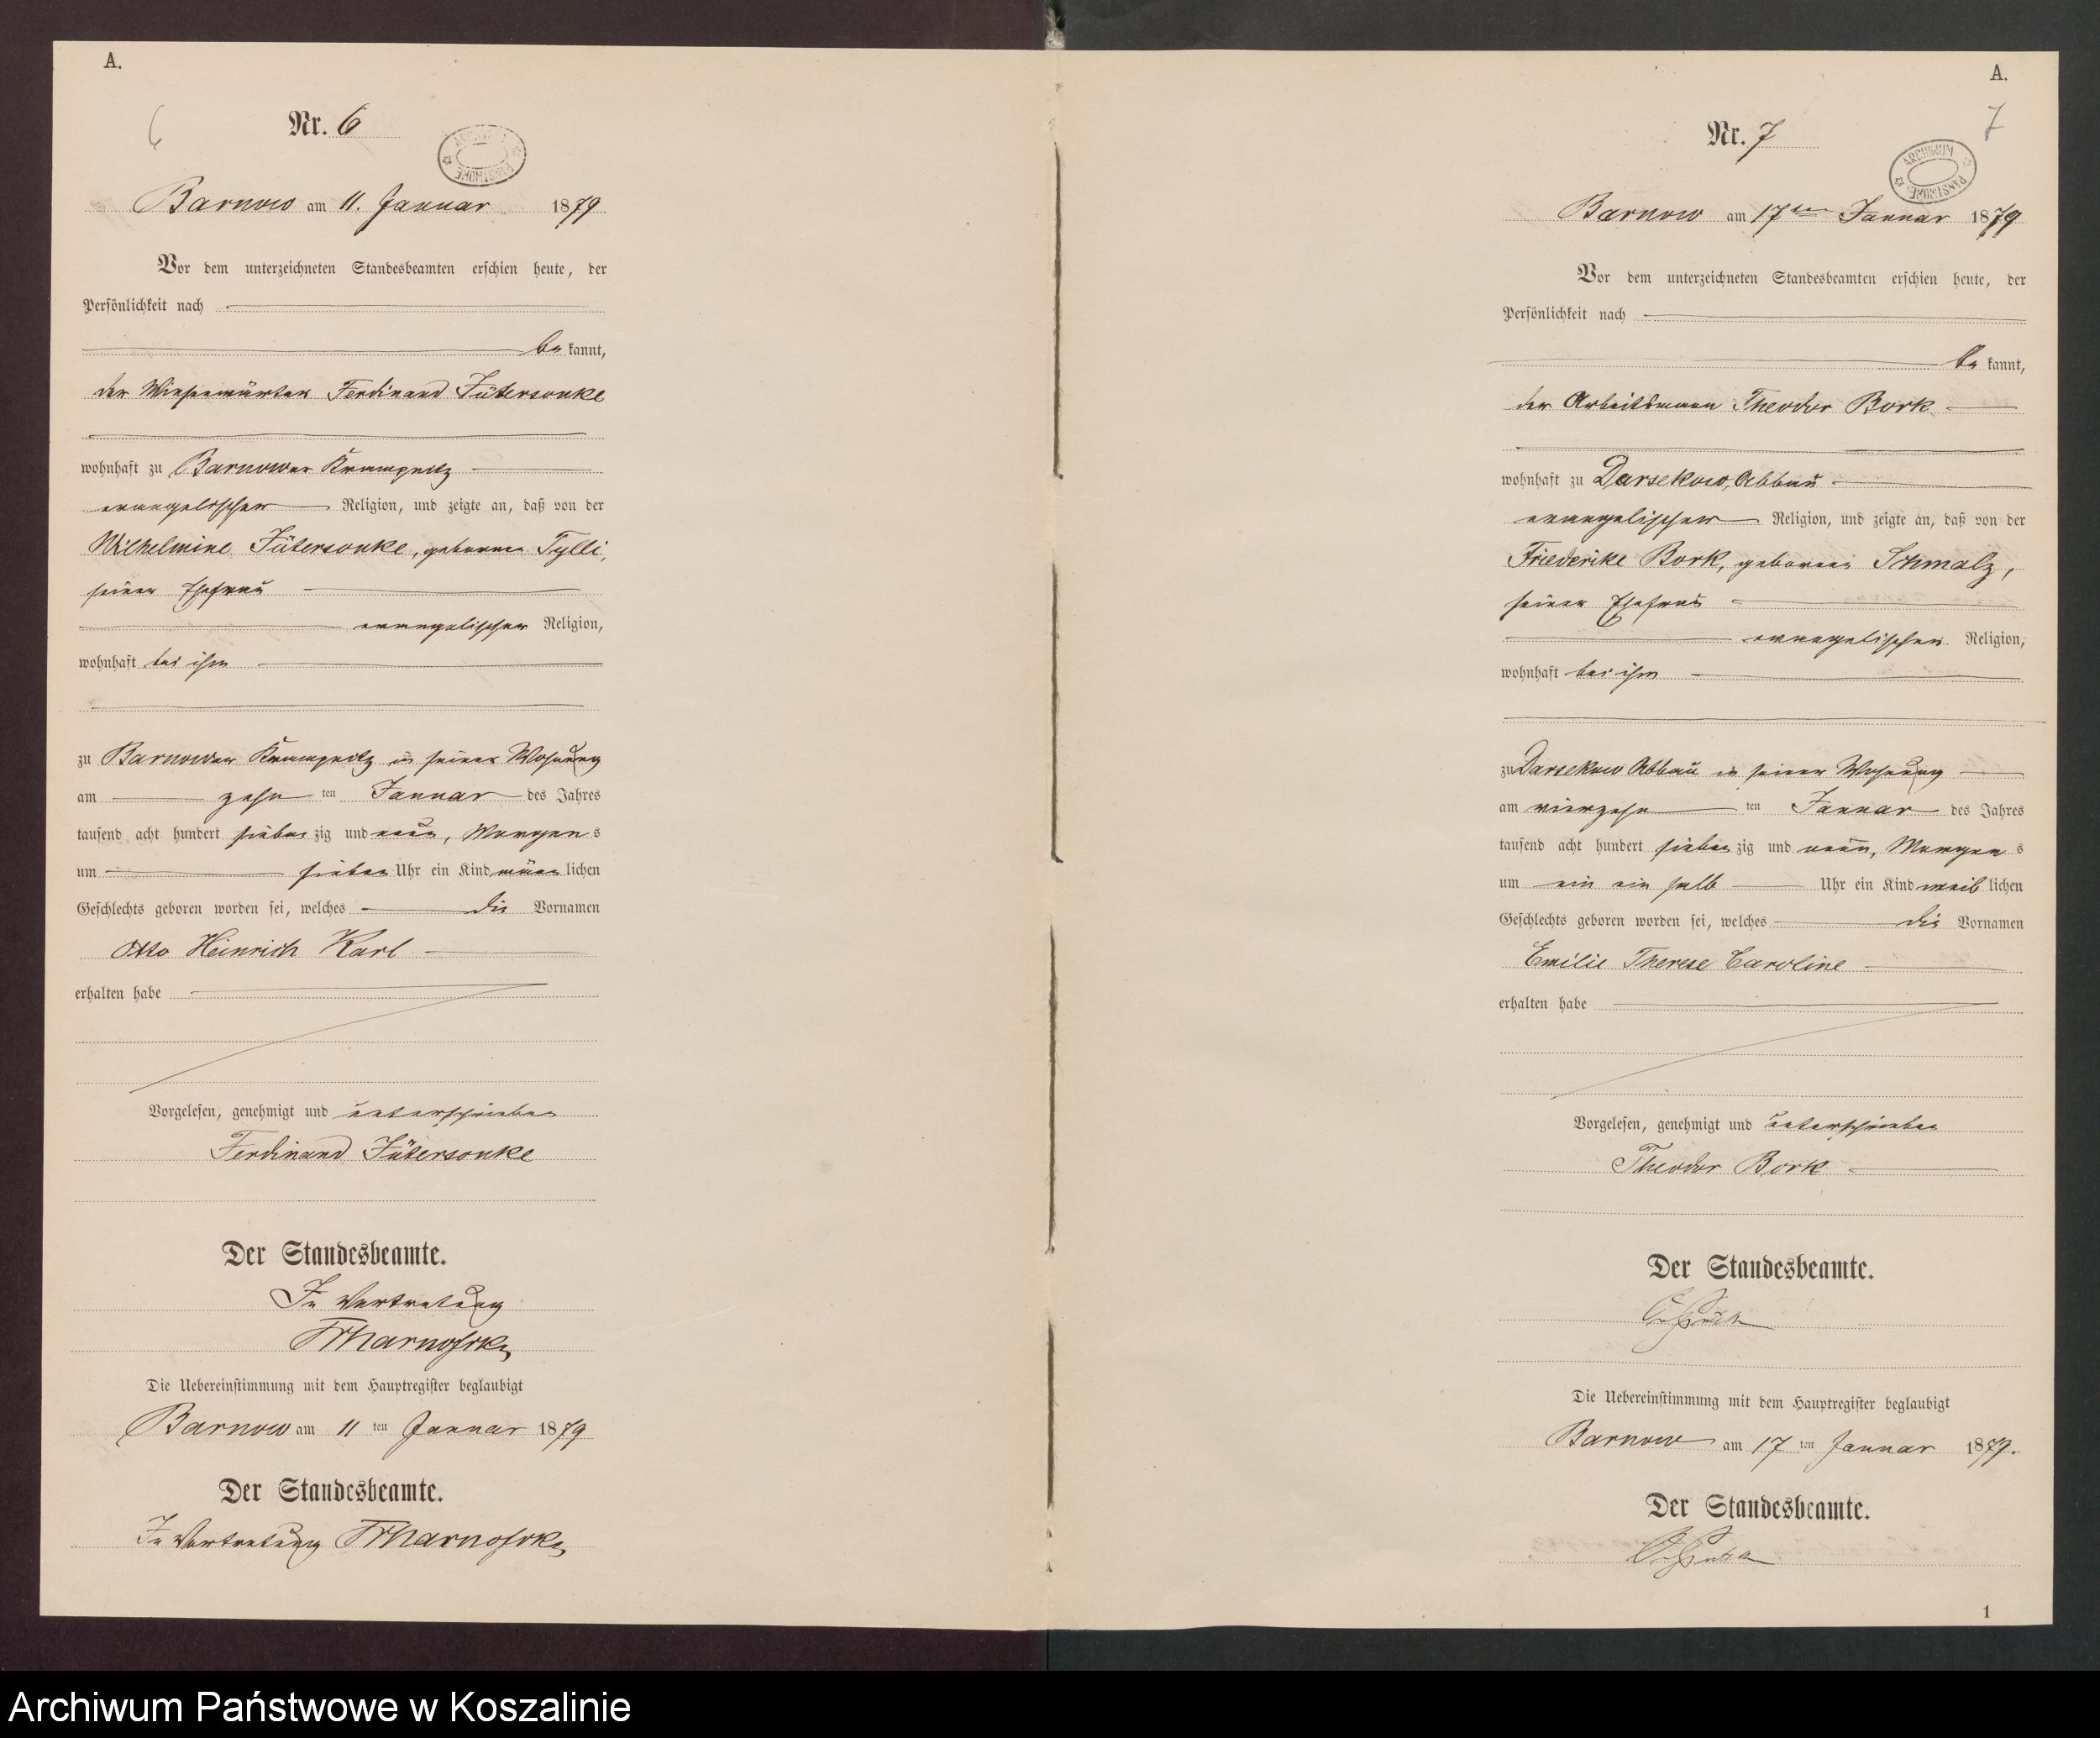 A.
6
Nr. 6
ARCHIWUM PAŃSTWOWE
Barnow am 11. Januar 1879
Vor dem unterzeichneten Standesbeamten erschien heute, der
Persönlichkeit nach
be kannt,
der Wiesenwärter Ferdinand Jütersonke
wohnhaft zu Barnower Krampnitz
evangelischer Religion, und zeigte an, daß von der
Wilhelmine Jütersonke, geborene Tylli,
seiner Ehefrau
evangelischer Religion,
wohnhaft bei ihm
zu Barnower Krampnitz in seiner Wohnung
am zehn ten Januar des Jahres
tausend acht hundert sieben zig und neun, Morgen s
um sieben Uhr ein Kind männ lichen
Geschlechts geboren worden sei, welches die Vornamen
Otto Heinrich Karl
erhalten habe
Vorgelesen, genehmigt und unterschrieben
Ferdinand Jütersonke
Der Standesbeamte.
In Vertretung
Die Uebereinstimmung mit dem Hauptregister beglaubigt
Barnow am 11 ten Januar 1879
Der Standesbeamte.
In Vertretung
A.
7
Nr. 7
ARCHIWUM PAŃSTWOWE
Barnow am 17ten Januar 1879
Vor dem unterzeichneten Standesbeamten erschien heute, der
Persönlichkeit nach
be kannt,
der Arbeitsmann Theodor Bork
wohnhaft zu Darsekow, Abbau
evangelischer Religion, und zeigte an, daß von der
Friederike Bork, geborene Schmalz,
seiner Ehefrau
evangelischen Religion,
wohnhaft bei ihm
zu Darsekow Abbau in seiner Wohnung
am vierzehn ten Januar des Jahres
tausend acht hundert sieben zig und neun, Morgen s
um ein ein halb Uhr ein Kind weib lichen
Geschlechts geboren worden sei, welches die Vornamen
Emilie Therese Caroline
erhalten habe
Vorgelesen, genehmigt und unterschrieben
Theodor Bork
Der Standesbeamte.
Die Uebereinstimmung mit dem Hauptregister beglaubigt
Barnow am 17 ten Januar 1879.
Der Standesbeamte.
1
Archiwum Państwowe w Koszalinie